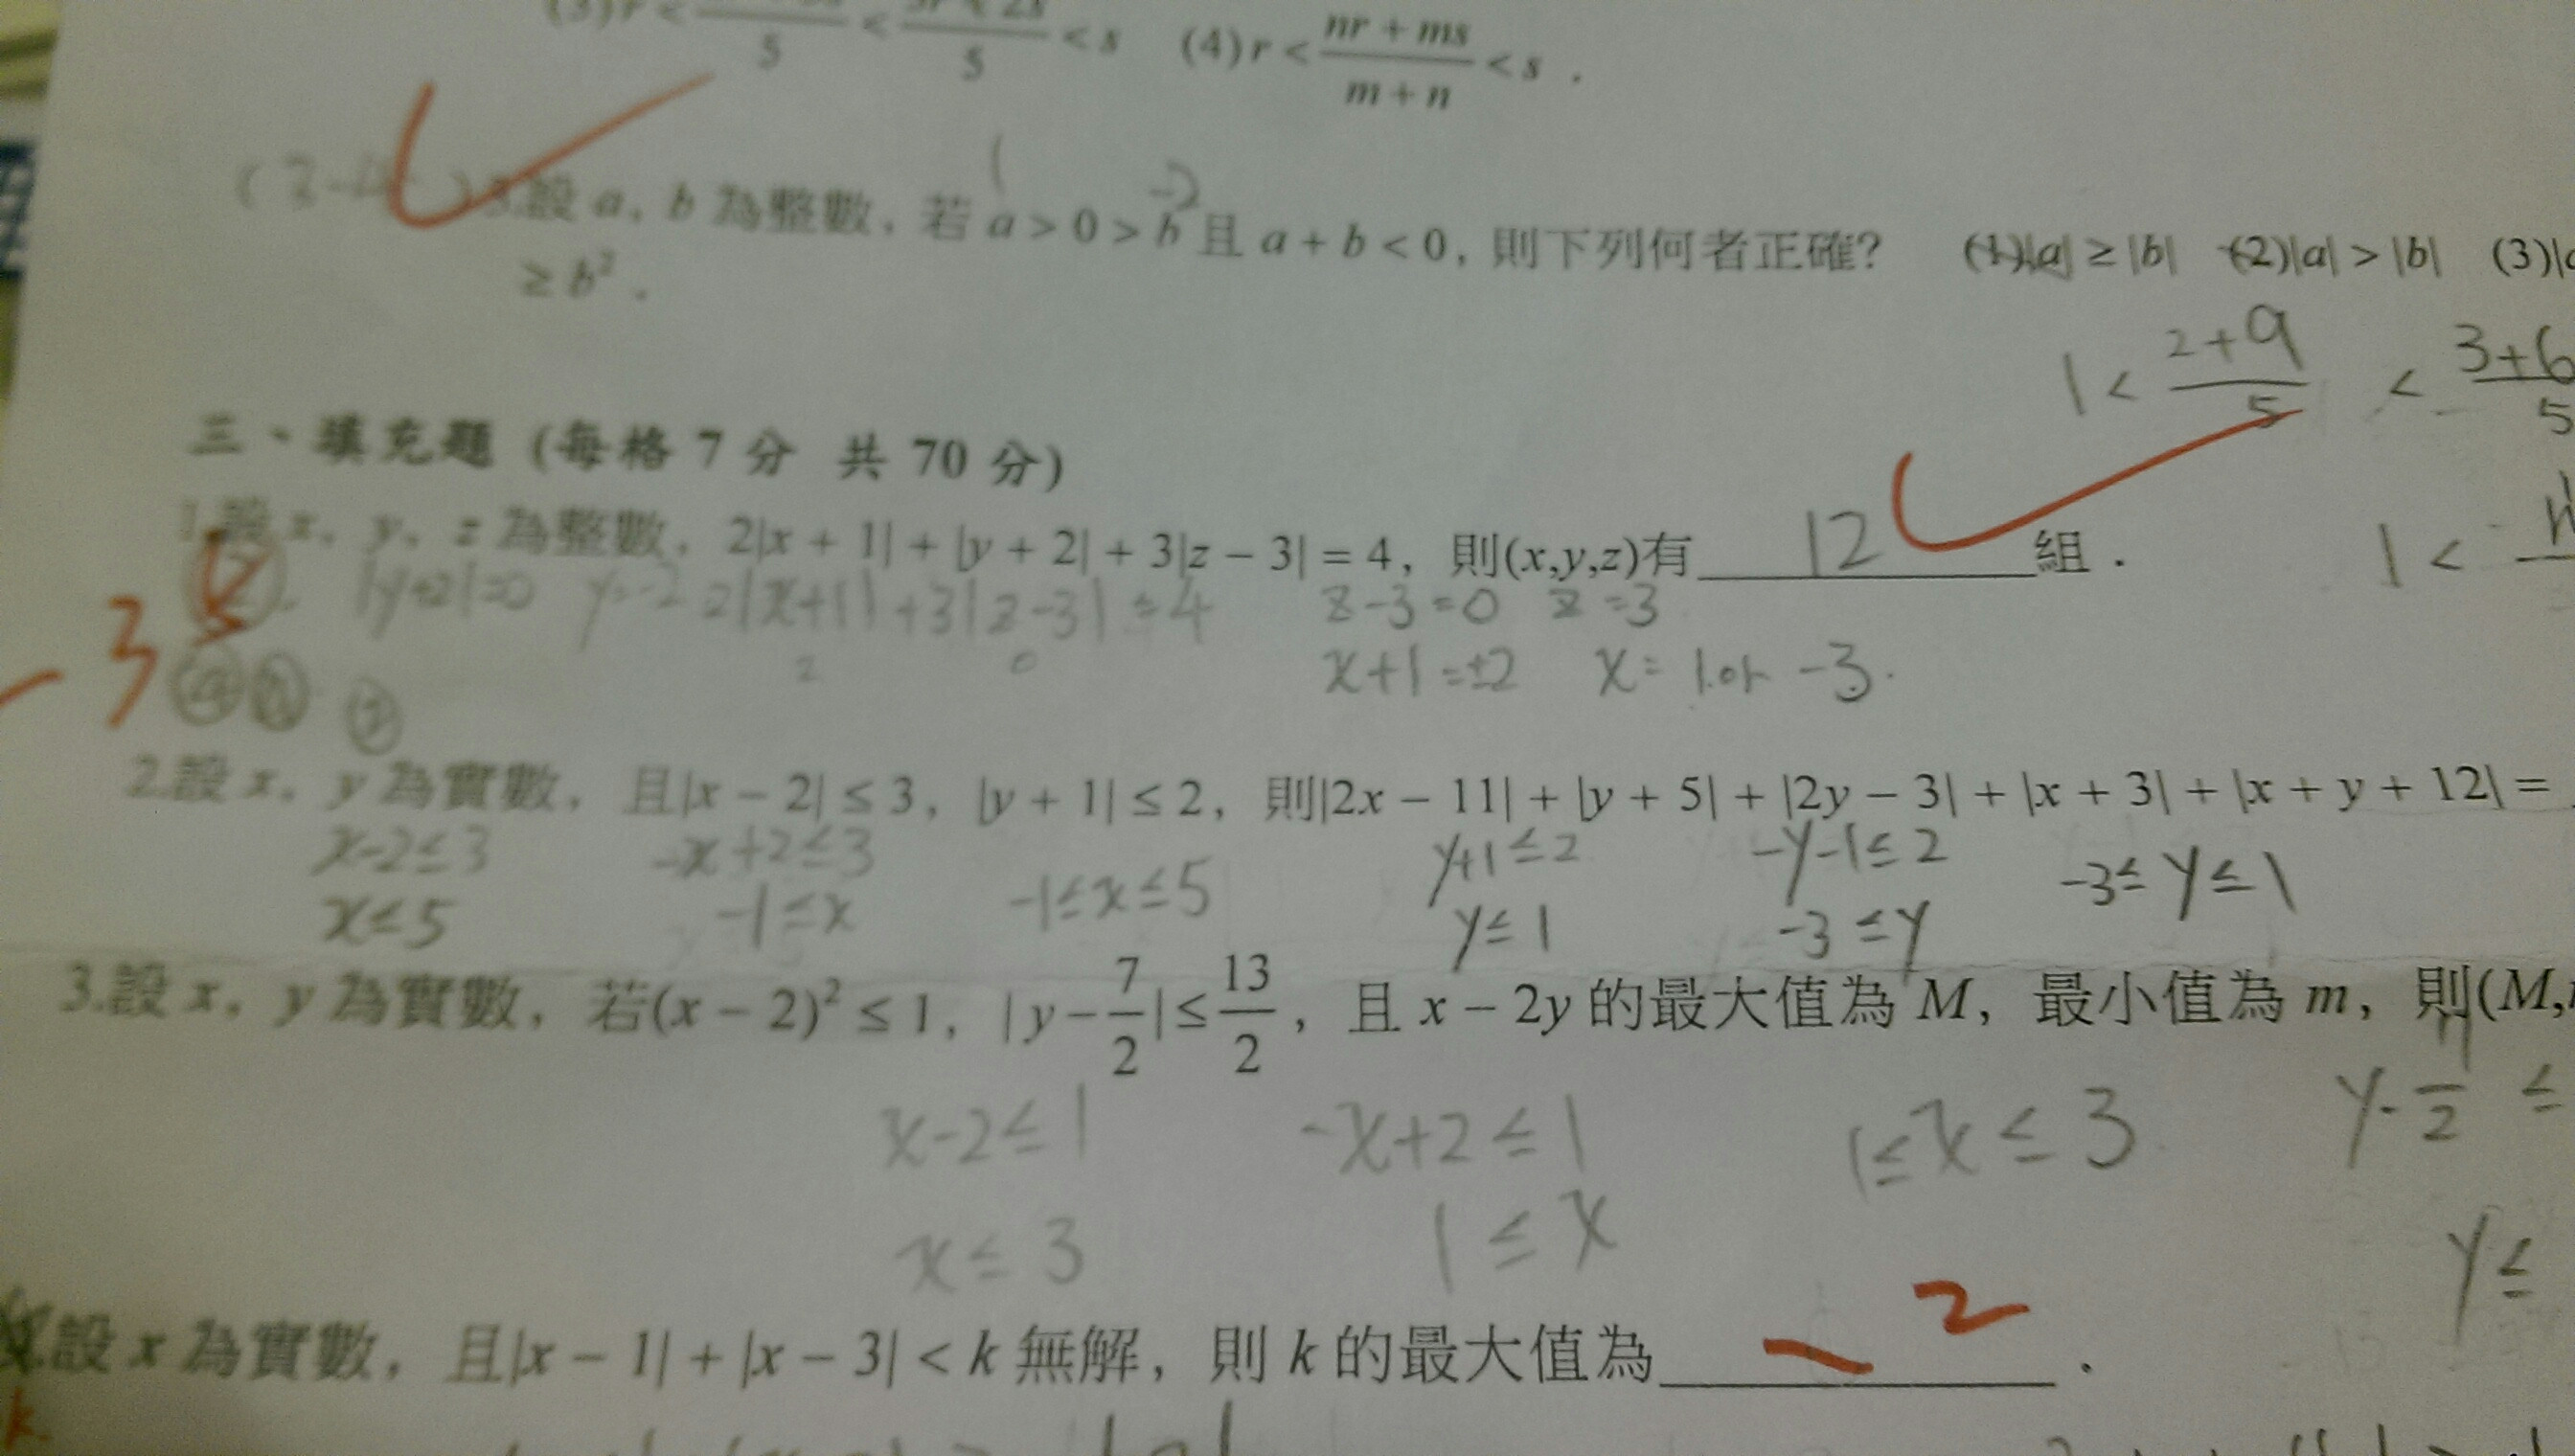 (3) r < 5 < 3r + 2s / 5 < s (4) r < nr + ms / m + n < s .
1 -2
3.設 a, b 為整數, 若 a > 0 > b 且 a + b < 0, 則下列何者正確? (1)|a| ≥ |b| (2)|a| > |b| (3)|a
≥ b² .
1 < 2+9 / 5 < 3+6 / 5
三、填充題 (每格 7 分 共 70 分)
1.設 x, y, z 為整數, 2|x + 1| + |y + 2| + 3|z − 3| = 4, 則(x,y,z)有 12 組 .
1 <
|y+2|=0 y=-2 2|x+1|+3|z-3|=4 z-3=0 z=3
2 0 x+1=±2 x=1 or -3.
2.設 x, y 為實數, 且|x − 2| ≤ 3, |y + 1| ≤ 2, 則|2x − 11| + |y + 5| + |2y − 3| + |x + 3| + |x + y + 12| =
x-2≤3 -x+2≤3 -1≤x≤5 y+1≤2 -y-1≤2 -3≤y≤1
x≤5 -1≤x y≤1 -3≤y
3.設 x, y 為實數, 若(x − 2)² ≤ 1, |y − 7/2| ≤ 13/2, 且 x − 2y 的最大值為 M, 最小值為 m, 則(M,
x-2≤1 -x+2≤1 1≤x≤3 y- /2 ≤
x≤3 1≤x y≤
設 x 為實數, 且|x − 1| + |x − 3| < k 無解, 則 k 的最大值為 2 .
k